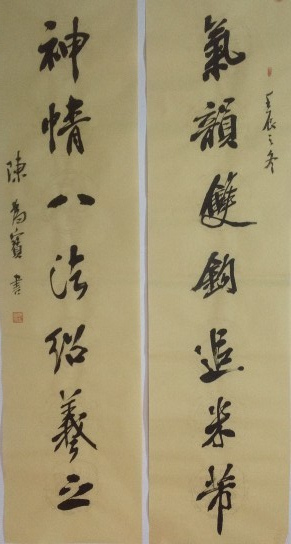 氣韻雙鉤追米芾
壬辰之冬
神情八法紹羲之
陳為寶書